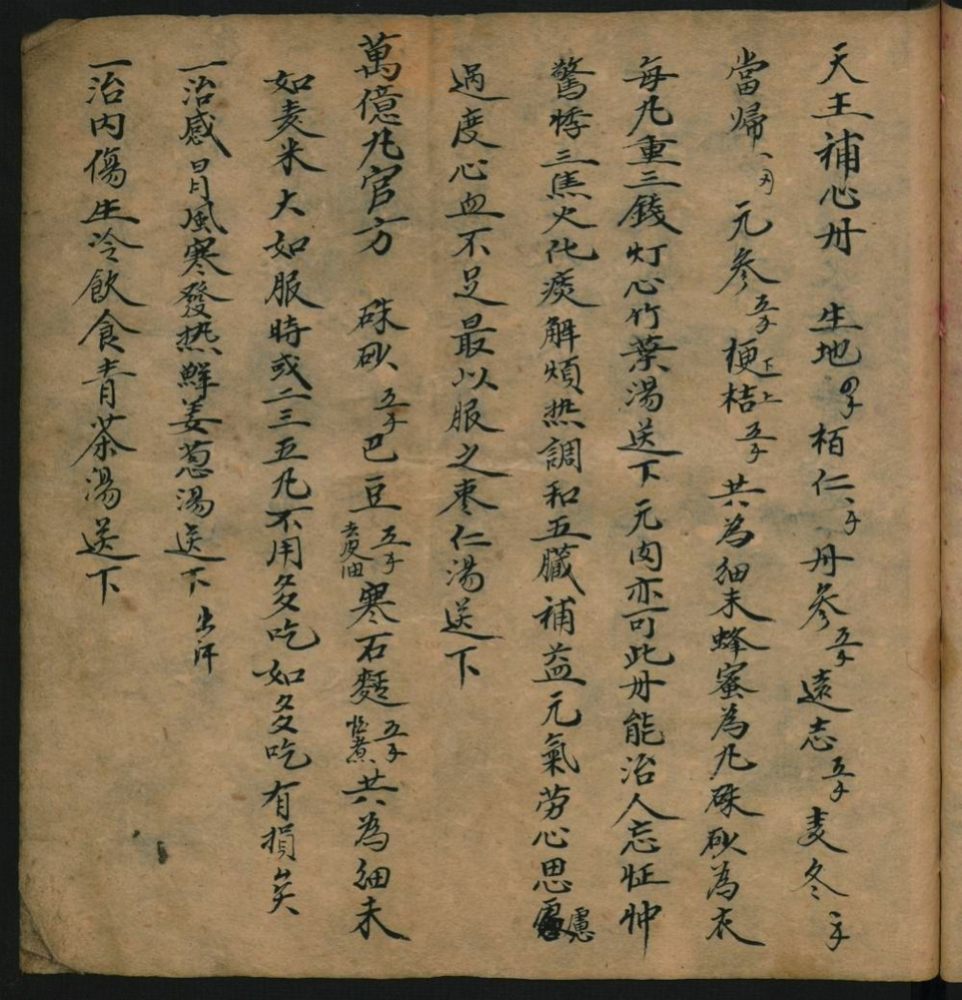 天王補心丹 生地 栢仁 丹參五 遠志五 麦冬二
當帰一 元參五 梗桔五 下上 共為細末蜂蜜為凡硃砂為衣
每凡重三錢灯心竹葉湯送下元肉亦可此丹能治人忘怔忡
驚悸三焦火化痰解煩热調和五臟補益元氣劳心思慮
過度心血不足最以服之枣仁湯送下
萬億凡官方 硃砂五 巴豆五 去皮油 寒石麵五 煮 共為細末
如麦米大如服時或二三五凡不用多吃如多吃有損矣
一治感冐風寒發热鮮姜葱湯送下 出汗
一治内傷生冷飲食青茶湯送下